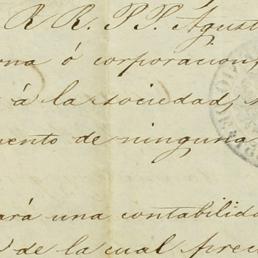 R R. P P. Agust
rna ó corporacion,
á la sociedad,
mento de ninguna
ará una contabilida
de la cual prec